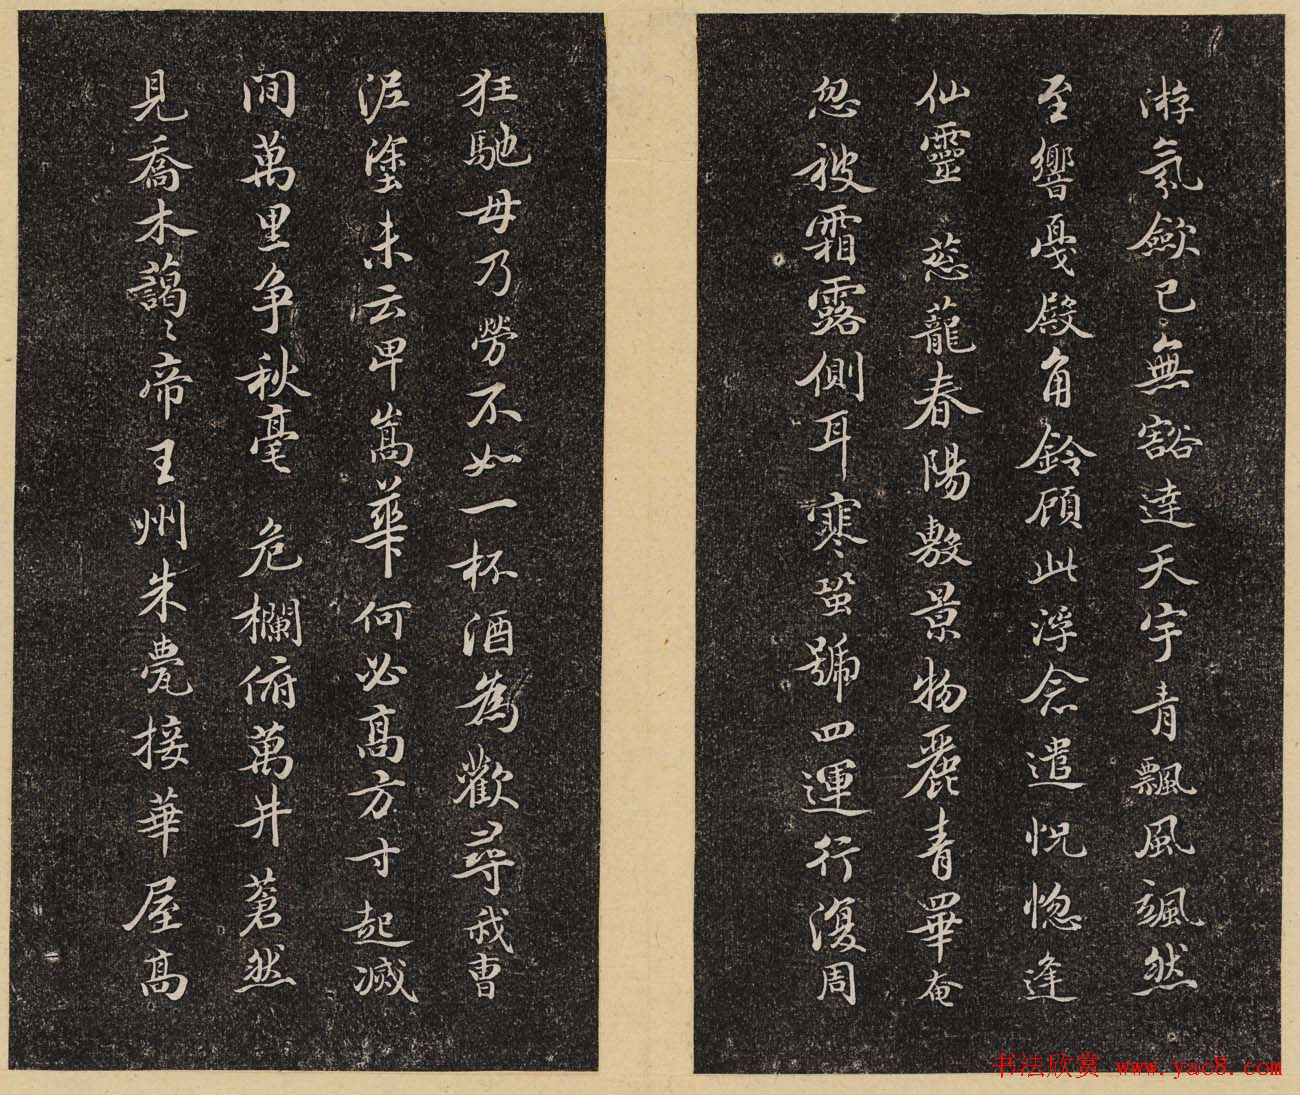 游氣歛已無豁達天宇青飄風颯然
至響戛殿角鈴顧此浮念遣怳惚逢
仙靈 蔥蘢春陽敷景物麗青罼奄
忽被霜露側耳寒蛩號四運行復周
狂馳毋乃勞不如一杯酒為歡尋我曹
泥塗未云卑嵩華何必高方寸起滅
間萬里爭秋毫 危欄俯萬井蒼然
見喬木藹〻帝王州朱甍接華屋高
书法欣赏 www.yac8.com